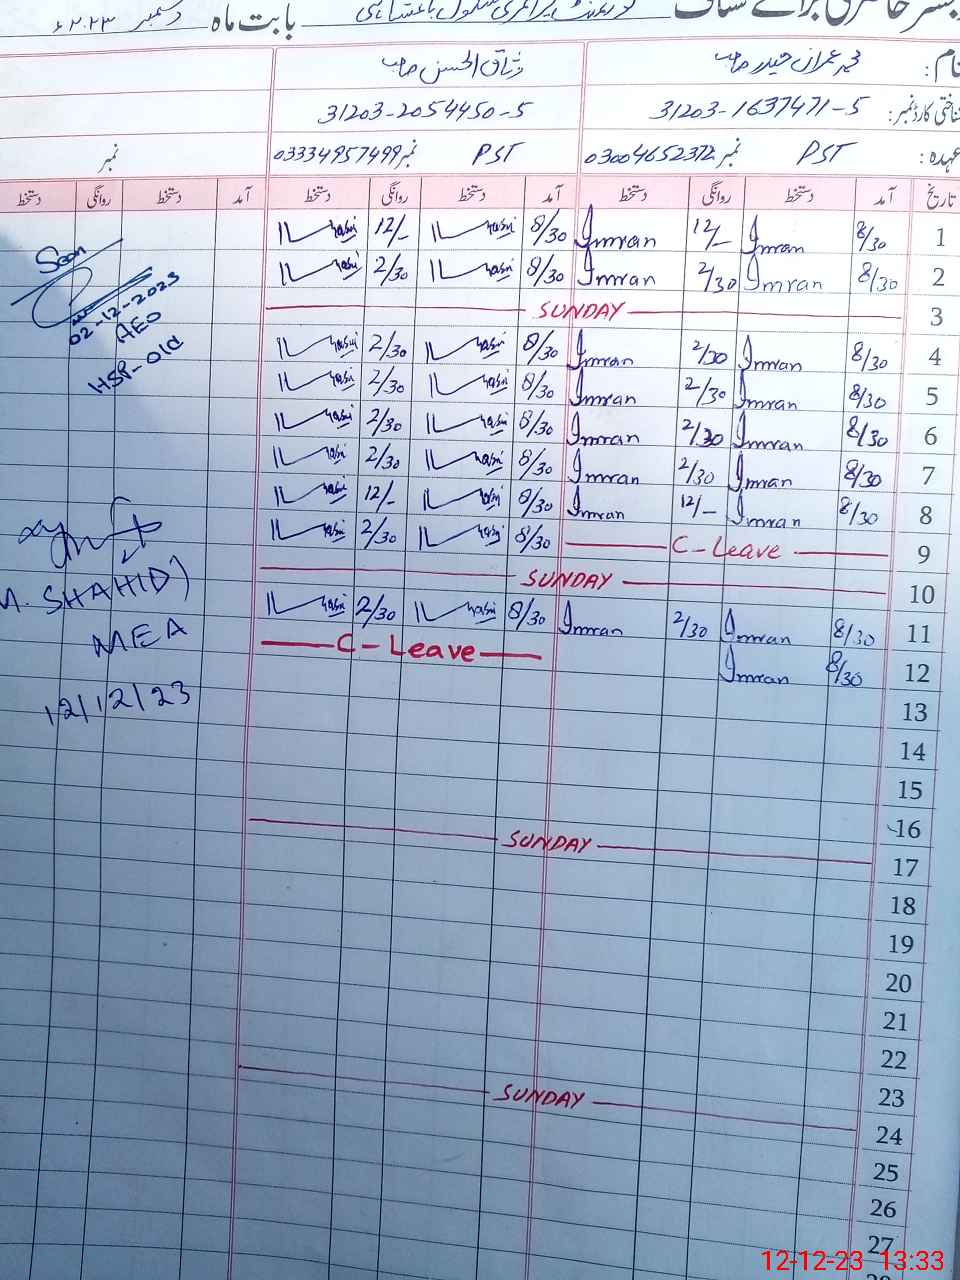 بابت ماہ دسمبر ۲۰۲۳ء
نام: محمد عمران حیدر صاحب وثاق الحسن صاحب
شناختی کارڈ نمبر: 31203-1637471-5 31203-2054450-5
عہدہ: PST نمبر 03004652372 PST نمبر 03334957499 نمبر
تاریخ آمد دستخط روانگی دستخط آمد دستخط روانگی دستخط آمد دستخط روانگی دستخط
1 8/30 Imran 12/- Imran 8/30 12/-
2 8/30 Imran 2/30 Imran 8/30 2/30
3 SUNDAY
4 8/30 Imran 2/30 Imran 8/30 2/30
5 8/30 Imran 2/30 Imran 8/30 2/30
6 8/30 Imran 2/30 Imran 8/30 2/30
7 8/30 Imran 2/30 Imran 8/30 2/30
8 8/30 Imran 12/- Imran 8/30 12/-
9 C-Leave 8/30 2/30
10 SUNDAY
11 8/30 Imran 2/30 Imran 8/30 2/30
12 8/30 Imran C-Leave
13
14
15
16
17 SUNDAY
18
19
20
21
22
23
24 SUNDAY
25
26
27
Seen
02-12-2023
AEO
HSP-old
M. SHAHID)
MEA
12/12/23
12-12-23 13:33